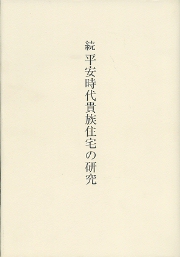 続 平安時代貴族住宅の研究